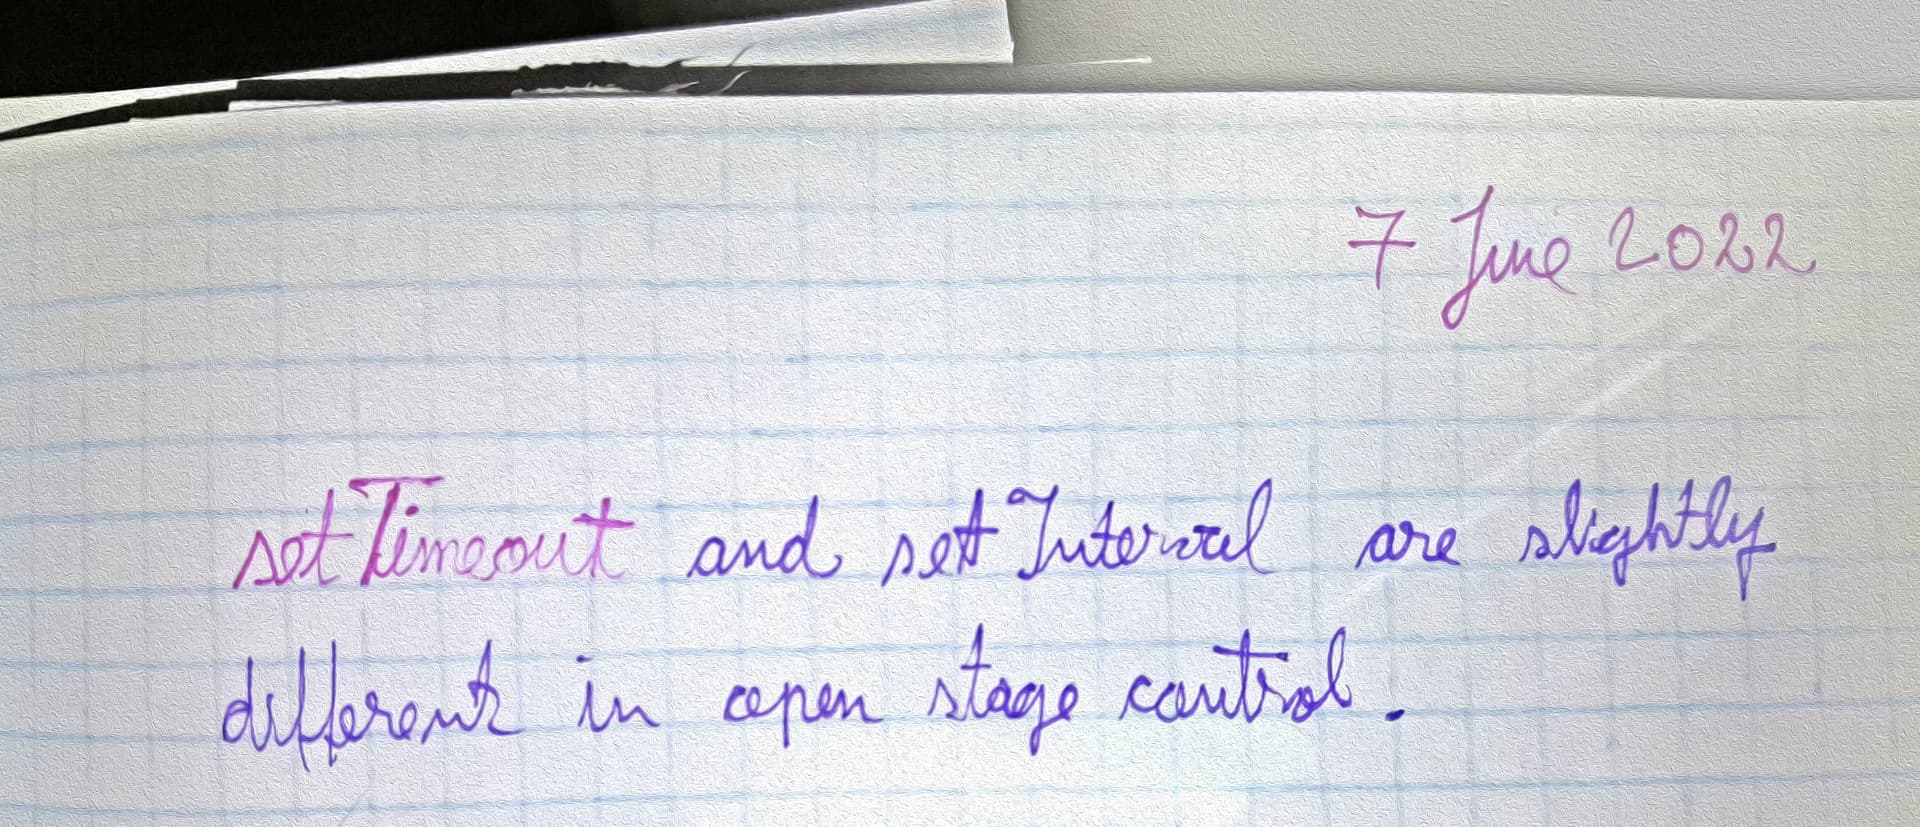 7 June 2022
setTimeout and setInterval are slightly
different in open stage control.